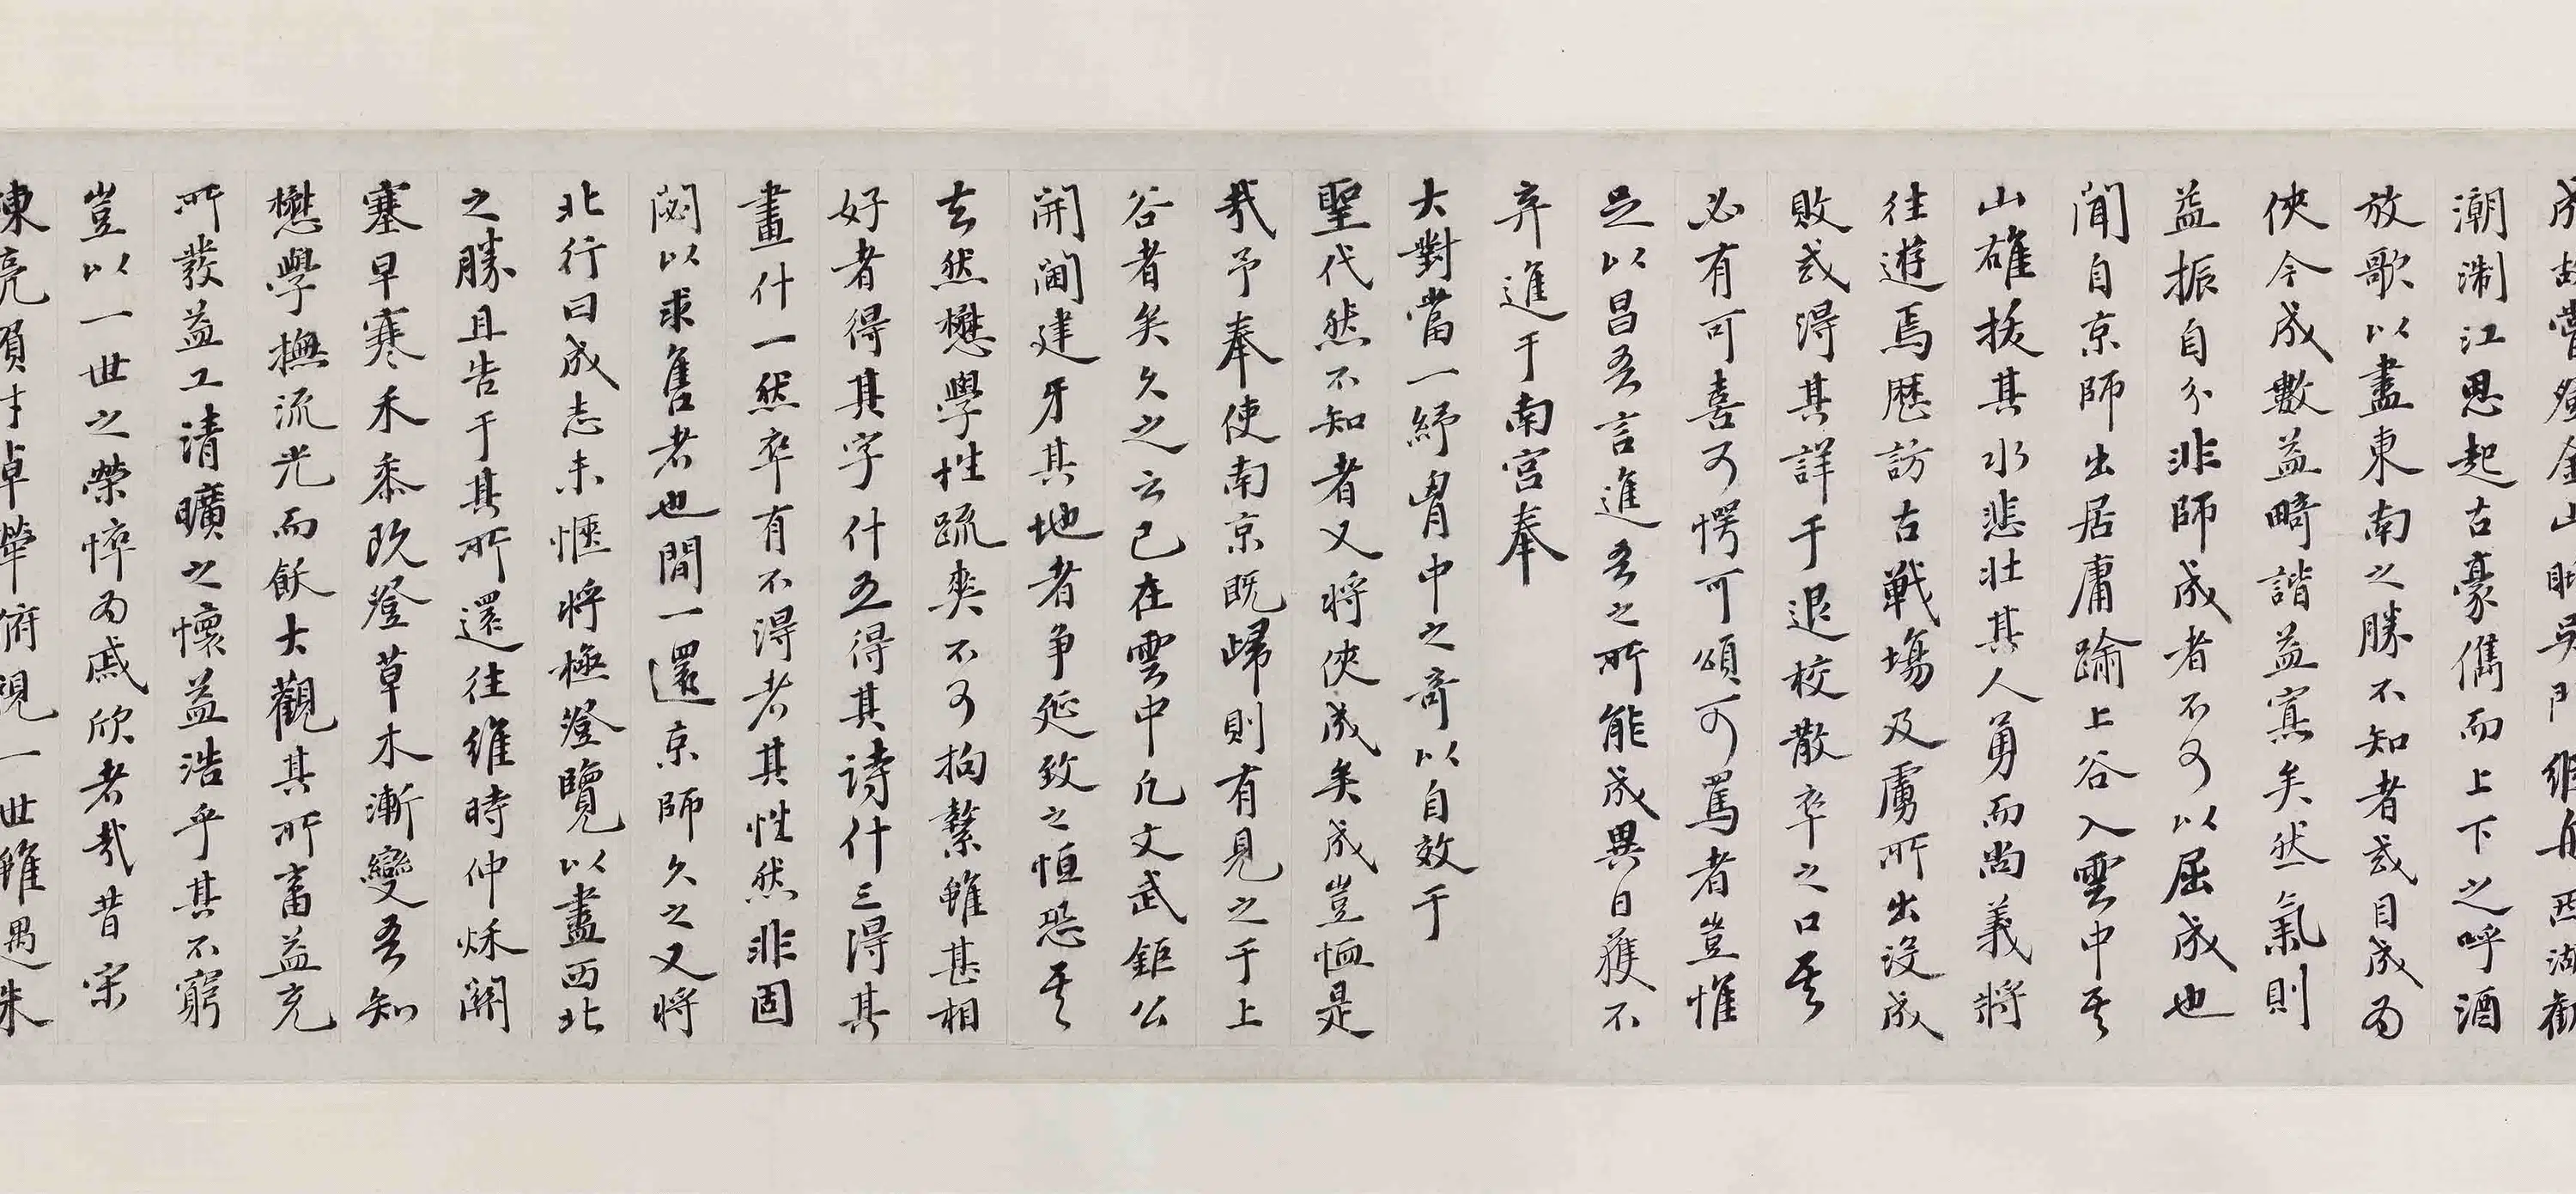 成故嘗登金山眺吳門維舟西湖觀
潮淛江思起古豪儁而上下之呼酒
放歌以盡東南之勝不知者或目成為
俠今成數益畸諧益寡矣然氣則
益振自分非師成者不可以屈成也
聞自京師出居庸踰上谷入雲中其
山雄拔其水悲壯其人勇而尚義將
往遊焉歷訪古戰場及虜所出沒成
敗或得其詳于退校散卒之口其
必有可喜可愕可頌可罵者豈惟
足以昌吾言進吾之所能成異日獲不
弃進于南宮奉
大對當一紓胷中之奇以自效于
聖代然不知者又將俠成矣成豈恤是
哉予奉使南京既歸則有見之于上
谷者矣久之云已在雲中凡文武鉅公
開閫建牙其地者争延致之恒恐其
去然懋學性疏爽不可拘縶雖甚相
好者得其字什五得其詩什三得其
畫什一然卒有不得者其性然非固
閟以求售者也間一還京師久之又將
北行曰成志未愜將極登覽以盡西北
之勝且告于其所還往維時仲秌關
塞早寒禾黍既登草木漸變吾知
懋學撫流光而飫大觀其所畜益充
所發益工清曠之懷益浩乎其不窮
豈以一世之榮悴為戚欣者哉昔宋
陳亮負才卓犖俯視一世雖遇朱